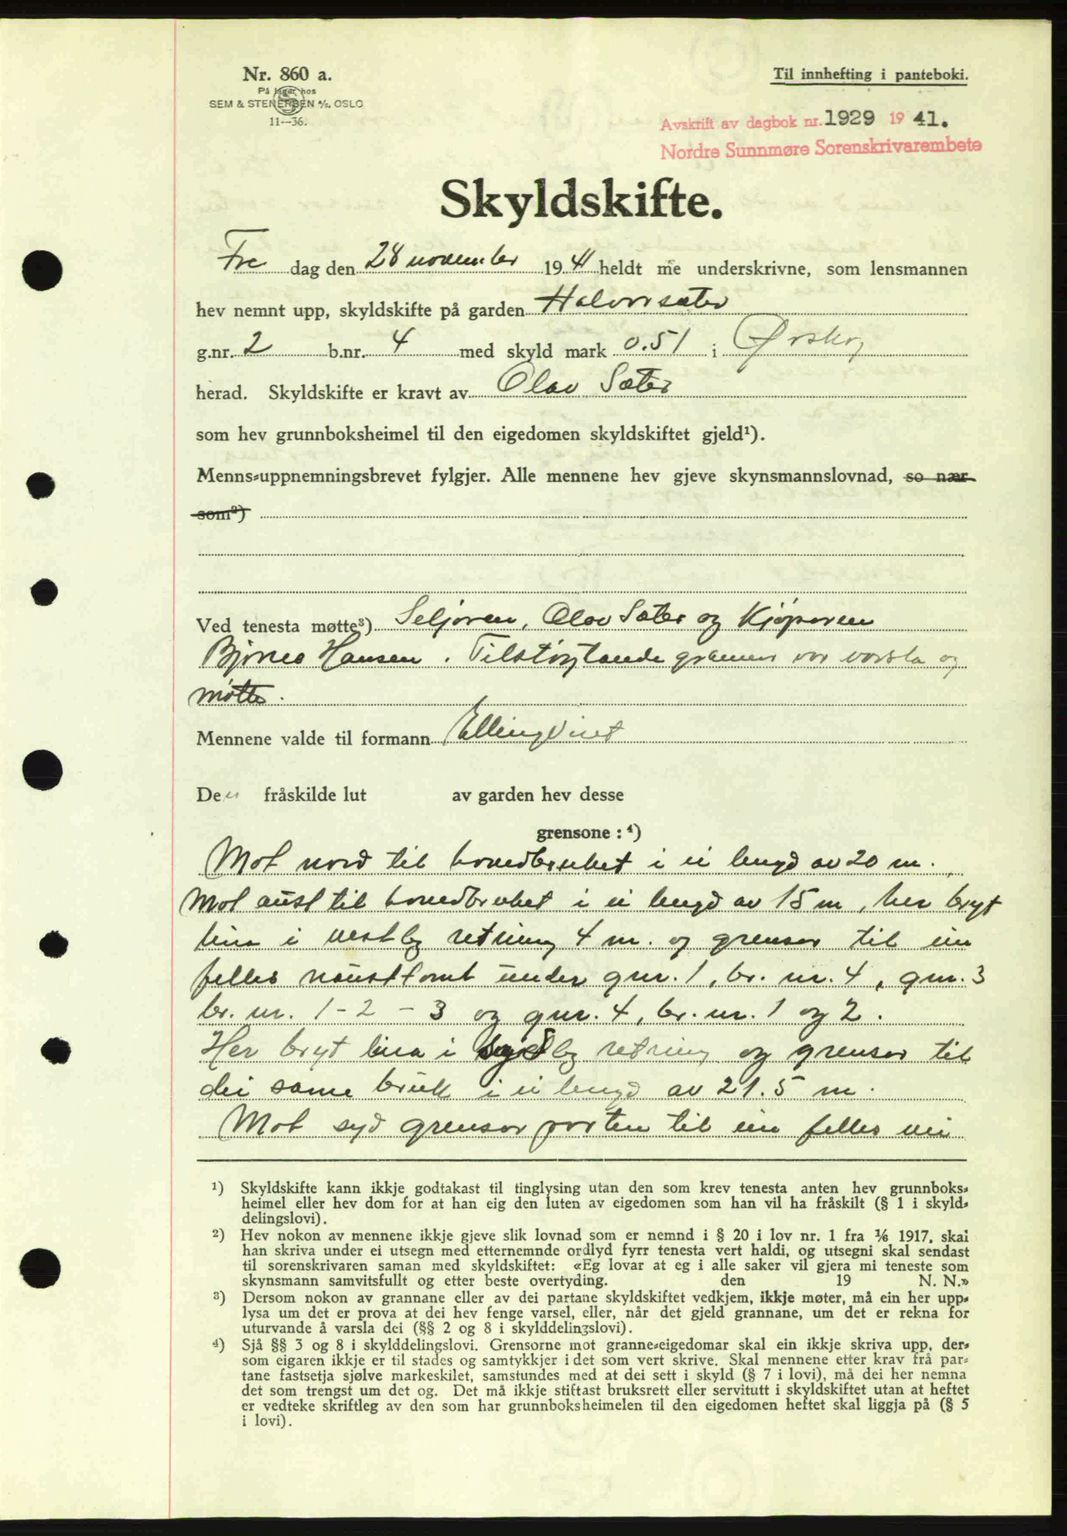 Nr. 860 a.
På lager hos
SEM & STENERSEN A/S. OSLO
11--36.
Til innhefting i panteboki.
Avskrift av dagbok nr. 1929 19 41.
Nordre Sunnmøre Sorenskrivarembete
Skyldskifte.
Fre dag den 28 november 1941 heldt me underskrivne, som lensmannen
hev nemnt upp, skyldskifte på garden Halvorsæter
g.nr. 2 b.nr. 4 med skyld mark 0.51 i Ørskog
herad. Skyldskifte er kravt av Olav Sæter
som hev grunnboksheimel til den eigedomen skyldskiftet gjeld¹).
Menns-uppnemningsbrevet fylgjer. Alle mennene hev gjeve skynsmannslovnad, so nær
som²)
Ved tenesta møtte³) Seljaren, Olav Sæter og Kjøparen
Bjørnes Hansen. Tilstøytande grannar var varsla og
møtte.
Mennene valde til formann Elling Viset
Den fråskilde lut av garden hev desse
grensone : ⁴)
Mot nord til hovedbruket i ei lengd av 20 m.
Mot aust til hovedbruket i ei lengd av 15 m, her bryt
lina i vestleg retning 4 m. og grensar til ein
felles nausttomt under gnr. 1, br. nr. 4, gnr. 3
br. nr. 1 - 2 - 3 og gnr. 4, br. nr. 1 og 2.
Her bryt lina i sydleg retning og grensar til
dei same bruk i ei lengd av 21.5 m.
Mot syd grensar parten til ein felles vei
¹) Skyldskifte kann ikkje godtakast til tinglysing utan den som krev tenesta anten hev grunnboks-
heimel eller hev dom for at han eig den luten av eigedomen som han vil ha fråskilt (§ 1 i skyld-
delingslovi).
²) Hev nokon av mennene ikkje gjeve slik lovnad som er nemnd i § 20 i lov nr. 1 fra 1/6 1917, skal
han skriva under ei utsegn med etternemnde ordlyd fyrr tenesta vert haldi, og utsegni skal sendast
til sorenskrivaren saman med skyldskiftet: «Eg lovar at eg i alle saker vil gjera mi teneste som
skynsmann samvitsfullt og etter beste overtyding. den 19 N. N.»
³) Dersom nokon av grannane eller av dei partane skyldskiftet vedkjem, ikkje møter, må ein her upp-
lysa um det er prova at dei hev fenge varsel, eller, når det gjeld grannane, um det er rekna for
uturvande å varsla dei (§§ 2 og 8 i skylddelingslovi).
⁴) Sjå §§ 3 og 8 i skylddelingslovi. Grensorne mot granne-eigedomar skal ein ikkje skriva upp, der-
som eigaren ikkje er til stades og samtykkjer i det som vert skrive. Skal mennene etter krav frå par-
tane fastsetja sjølve markeskilet, samstundes med at dei sett i skyld (§ 7 i lovi), må dei her nemna
det som trengst um det og. Det må ikkje stiftast bruksrett eller servitutt i skyldskiftet utan at heftet
er vedteke skriftleg av den som har grunnboksheimelen til den eigedomen heftet skal liggja på (§ 5
i lovi).